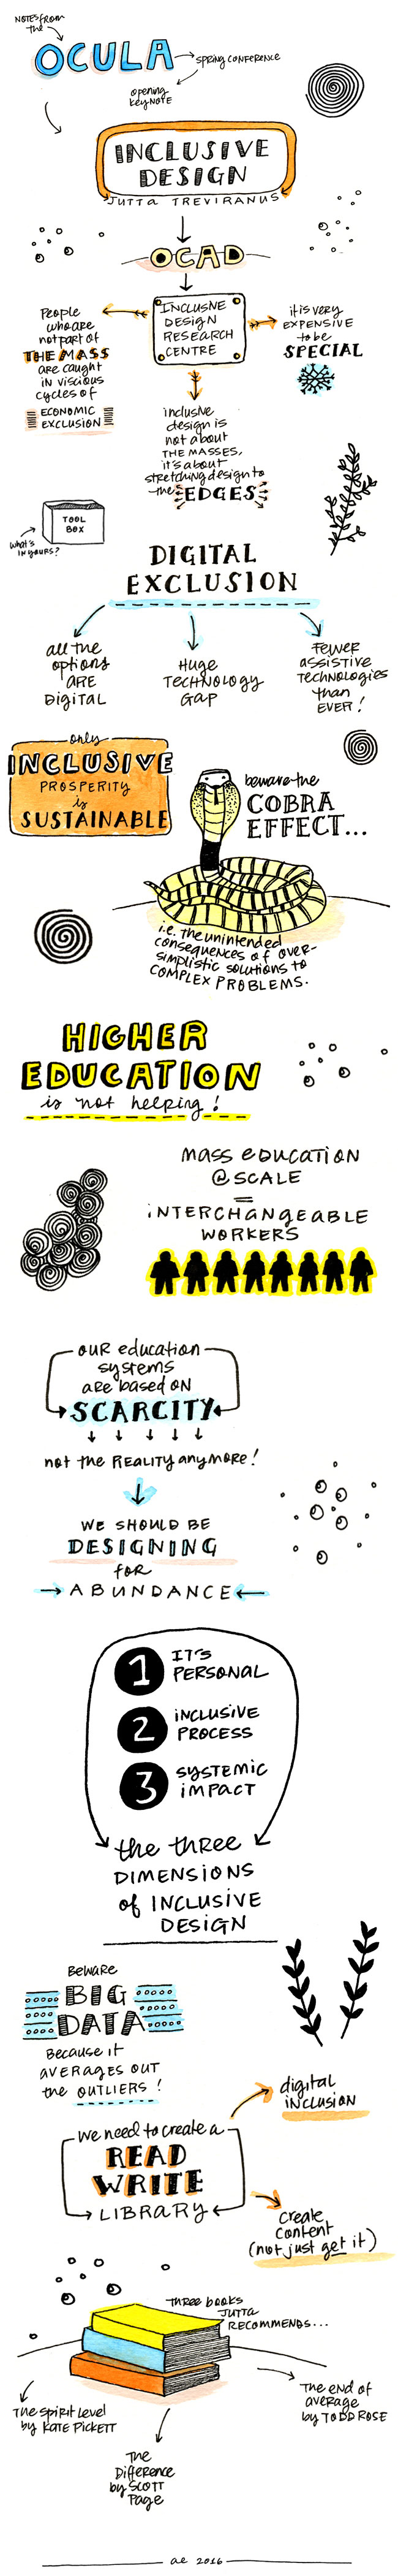 NOTES from
the
OCULA
SPRING CONFERENCE
opening
keynote
INCLUSIVE
DESIGN
JUTTA TREVIRANUS
OCAD
INCLUSIVE
DESIGN
RESEARCH
CENTRE
People
who are
not part of
THE MASS
are caught
in viscious
cycles of
ECONOMIC
EXCLUSION
it is very
EXPENSIVE
to be
SPECIAL
inclusive
design is
not about
THE MASSES,
it's about
stretching design to
the EDGES
TOOL
BOX
what's
in yours?
DIGITAL
EXCLUSION
all the
options
ARE
DIGITAL
HUGE
TECHNOLOGY
GAP
FEWER
ASSISTIVE
TECHNOLOGIES
than
EVER!
only
INCLUSIVE
PROSPERITY
is
SUSTAINABLE
beware the
COBRA
EFFECT...
i.e. the unintended
consequences of over-
simplistic solutions to
COMPLEX PROBLEMS.
HIGHER
EDUCATION
is not helping!
MASS EDUCATION
@ SCALE
=
INTERCHANGEABLE
WORKERS
OUR education
systems
are based on
SCARCITY
not the REALITY anymore!
WE SHOULD BE
DESIGNING
for
ABUNDANCE
1 IT'S
PERSONAL
2 INCLUSIVE
PROCESS
3 SYSTEMIC
IMPACT
the three
DIMENSIONS
of INCLUSIVE
DESIGN
BEWARE
BIG
DATA
Because it
AVERAGES OUT
the OUTLIERS!
digital
INCLUSION
we need to create a
READ
WRITE
LIBRARY
create
content
(not just get it)
THREE books
JUTTA
RECOMMENDS...
The spirit level
by KATE PICKETT
The end of
average
by TODD ROSE
The
Difference
by SCOTT
Page
ae 2016